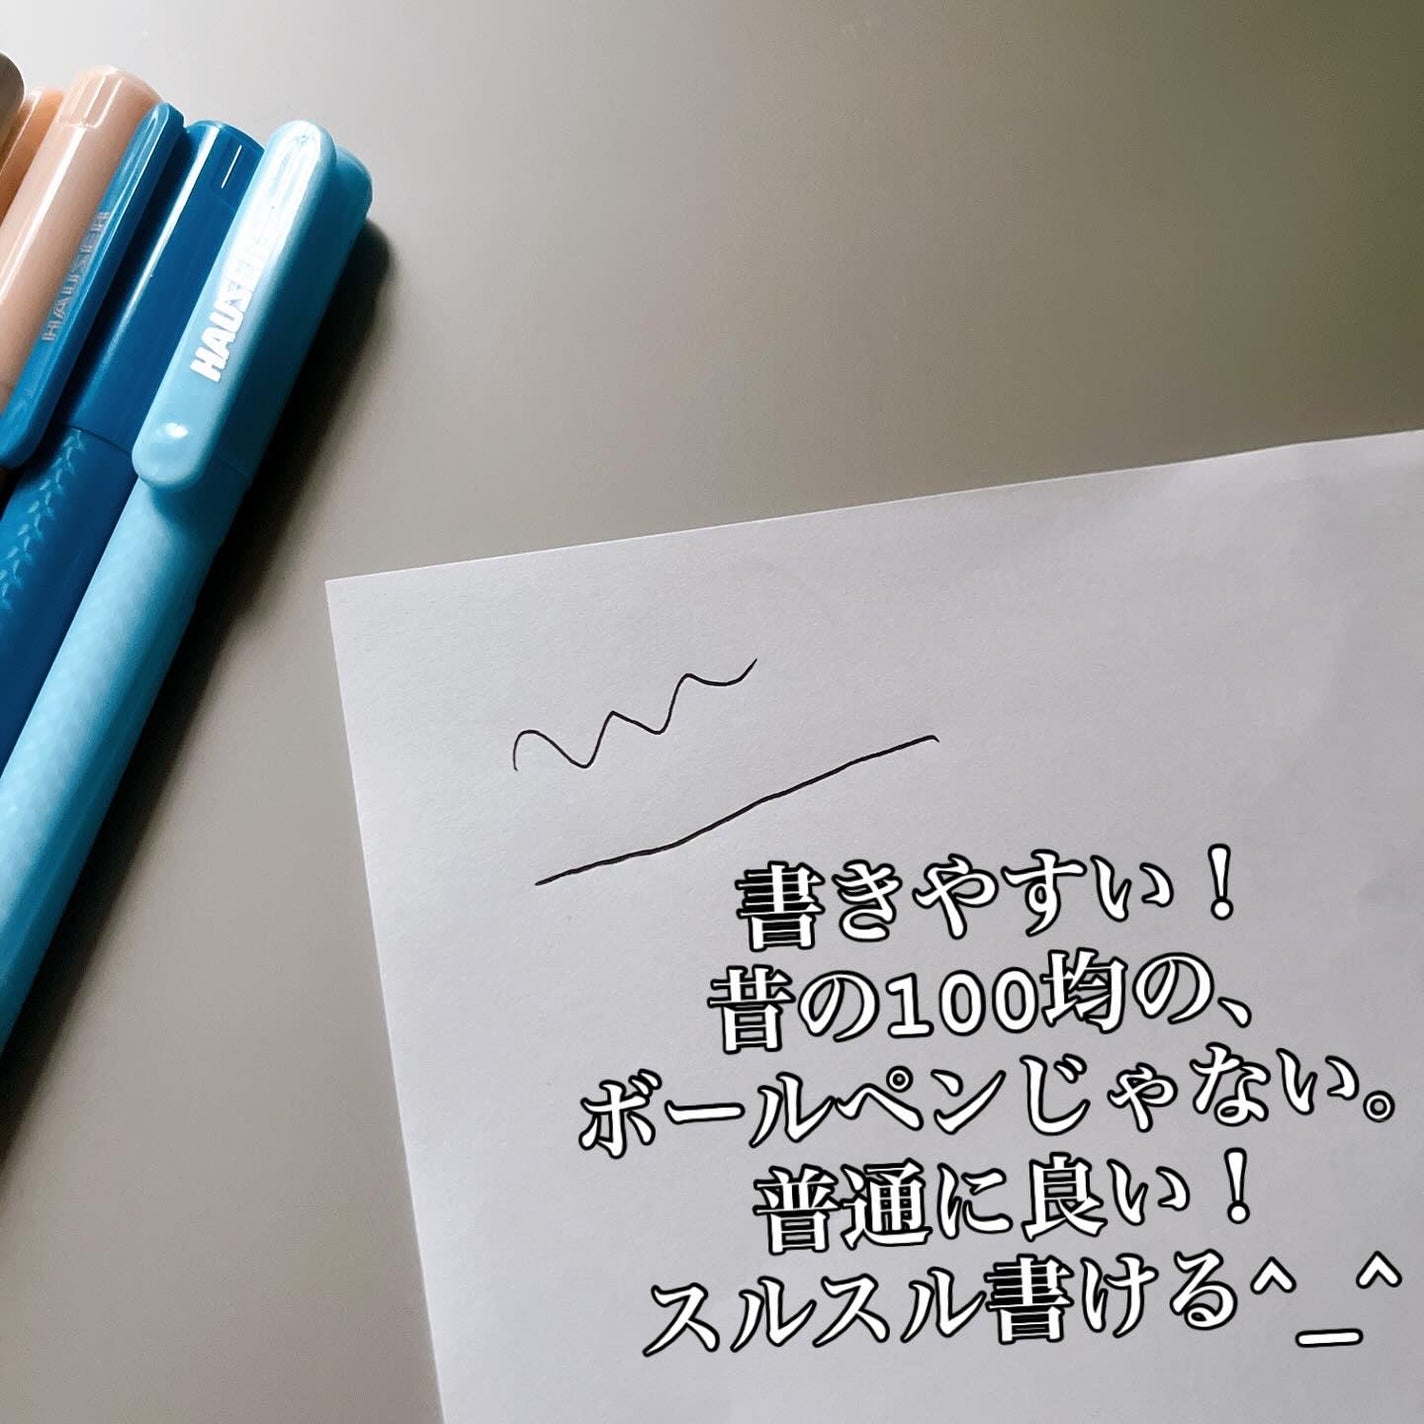 HAUSER
HAUSER
書きやすい！
昔の100均の、
ボールペンじゃない。
普通に良い！
スルスル書ける^_^